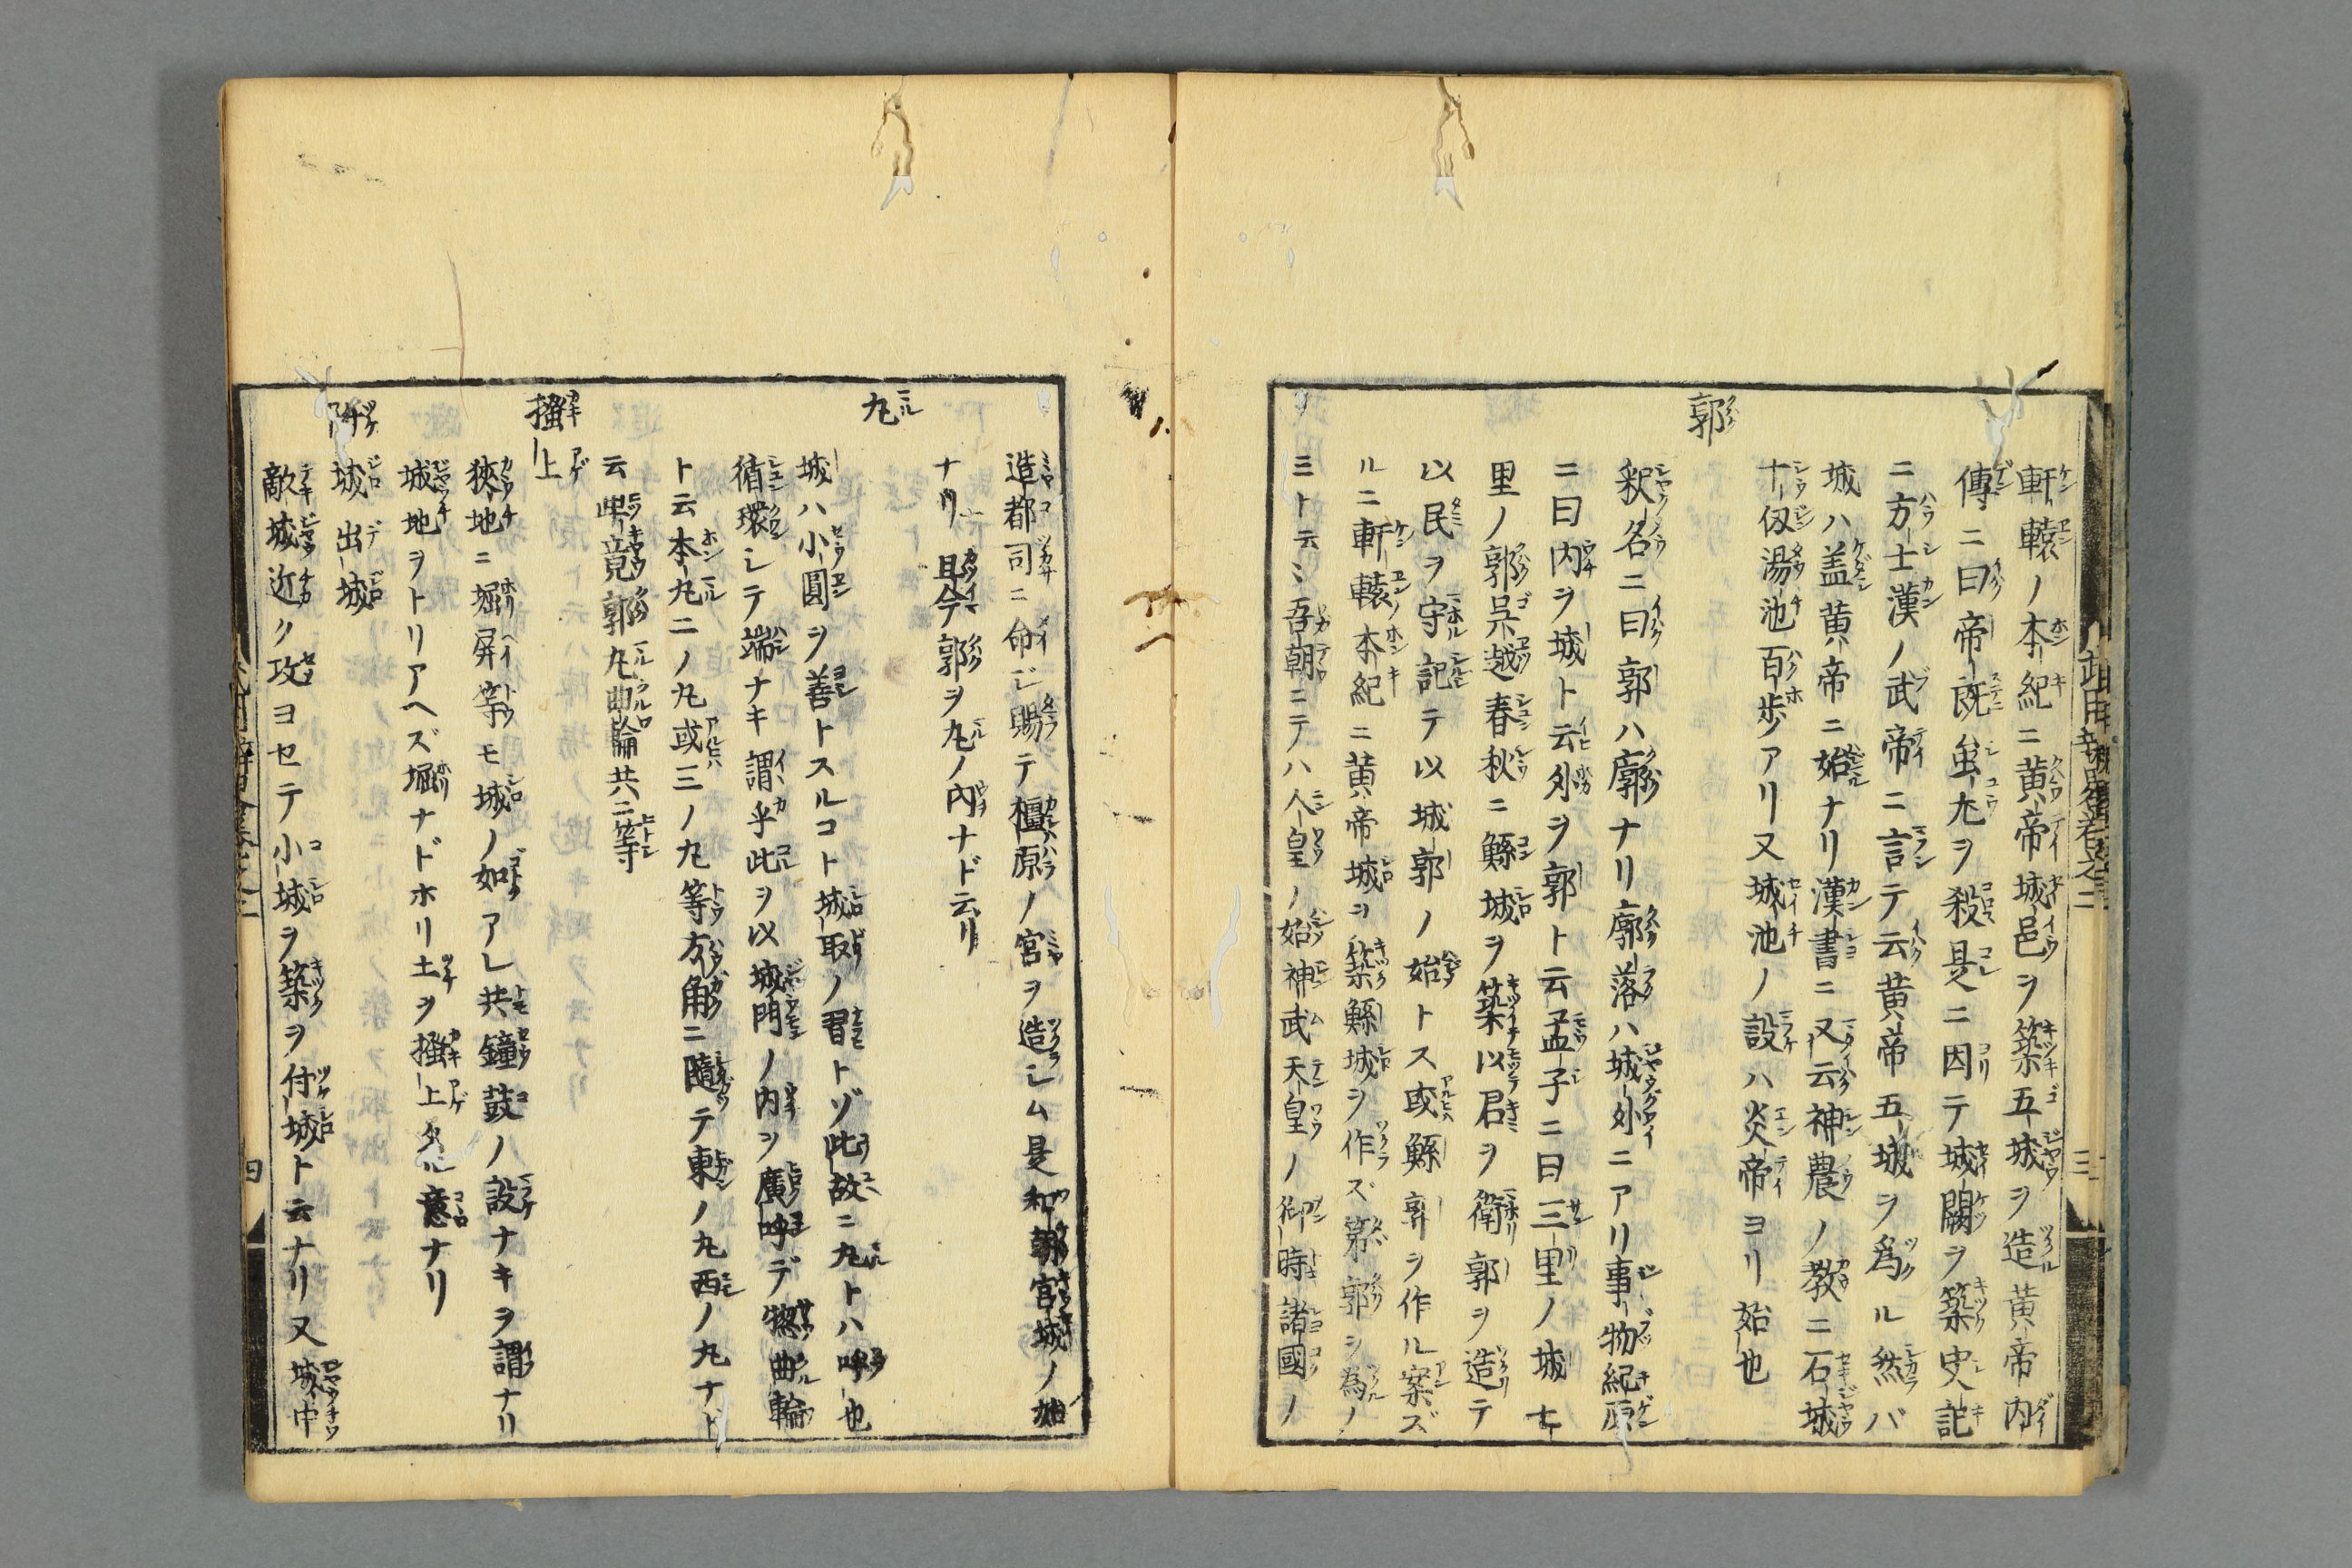 軒轅ノ本紀ニ黄帝城邑ヲ築五城ヲ造黄帝内
傳ニ曰帝既蚩尤ヲ殺是ニ因テ城闕ヲ築史記
ニ方士漢ノ武帝ニ言テ云黄帝五城ヲ爲ル然バ
城ハ盖黄帝ニ始ナリ漢書ニ又云神農ノ教ニ石城
十仭湯池百歩アリ又城池ノ設ハ炎帝ヨリ始也
郭
釈名ニ曰郭ハ廓ナリ廓落ハ城外ニアリ事物紀原
ニ曰内ヲ城ト云外ヲ郭ト云孟子ニ曰三里ノ城七
里ノ郭呉越春秋ニ鯀城ヲ築以君ヲ衛郭ヲ造テ
以民ヲ守記テ以城郭ノ始トス或鯀郭ヲ作ル案ズ
ルニ軒轅本紀ニ黄帝城ヲ築鯀城ヲ作ズ郭ヲ為ノ
ミト云々吾朝ニテハ人皇ノ始神武天皇ノ御時諸國ノ
造都司ニ命ジ賜テ橿原ノ宮ヲ造シム是和朝宮城ノ始
ナリ且今郭ヲ丸ノ内ナド云リ
丸
城ハ小圓ヲ善トスルコト城取ノ習トゾ此故ニ丸トハ呼也
循環シテ端ナキ謂乎此ヲ以城門ノ内ヲ廣呼デ惣曲輪
ト云本丸二ノ丸或三ノ丸等方角ニ隨テ東ノ丸西ノ丸ナド
云畢竟郭丸曲輪共ニ等
掻上
狹地ニ堀屏等モ城ノ如アレ共鐘鼓ノ設ナキヲ謂ナリ
城地ヲトリアヘズ堀ナドホリ土ヲ掻上タル意ナリ
附城 出城
敵城近ク攻ヨセテ小城ヲ築ヲ付城ト云ナリ又城中
四